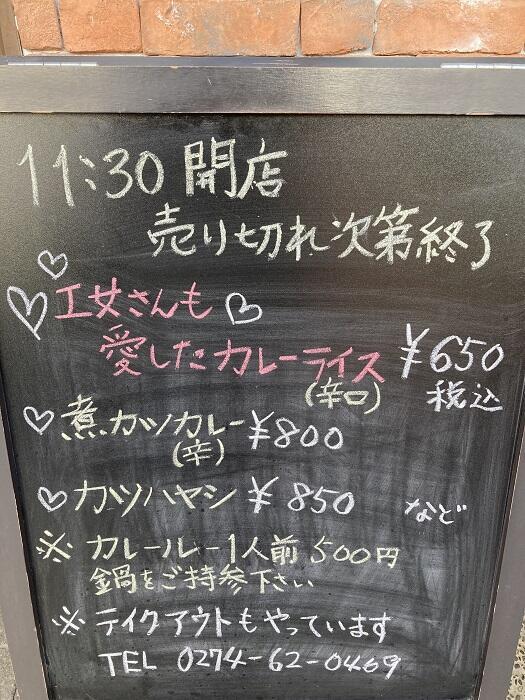 11:30 開店
売り切れ次第終了
♡工女さんも♡
愛したカレーライス ¥650
(辛口) 税込
♡煮カツカレー ¥800
(辛)
♡カツハヤシ ¥850 など
※ カレールー1人前 500円
鍋をご持参下さい
※ テイクアウトもやっています
TEL 0274-62-0469